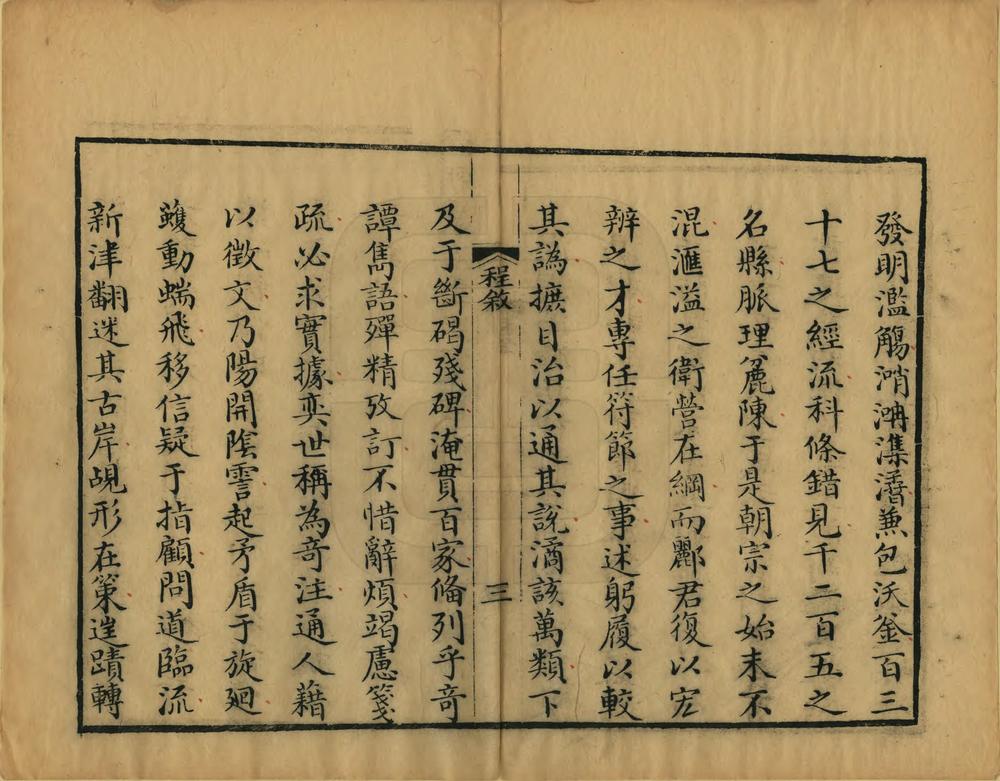 發明濫觴㳙澵潗㵫兼包沃釜百三
十七之經流科條錯見千二百五之
名縣脈理麤陳于是朝宗之始末不
混滙溢之衛營在綱而酈君復以宏
辨之才專任符節之事述躬履以較
其譌攄目治以通其説滀該萬類下
程敘
三
及于斷碣殘碑淹貫百家俻列乎奇
譚雋語殫精攷訂不惜辭煩竭慮箋
疏必求實據奕世稱為奇注通人藉
以徵文乃陽開陰霒起矛盾于旋廻
蠖動蝡飛移信疑于指顧問道臨流
新津翻迷其古岸覘形在策遑蹟轉